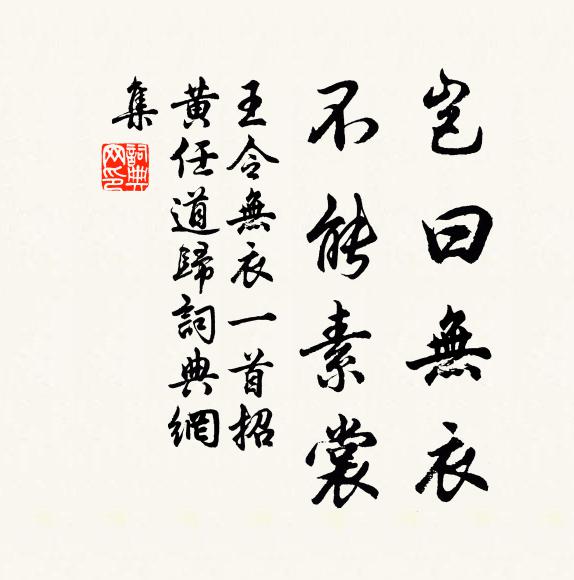 豈曰無衣
不能素裳
王令無衣一首招
黃任道歸詞典網
集
詞典網印